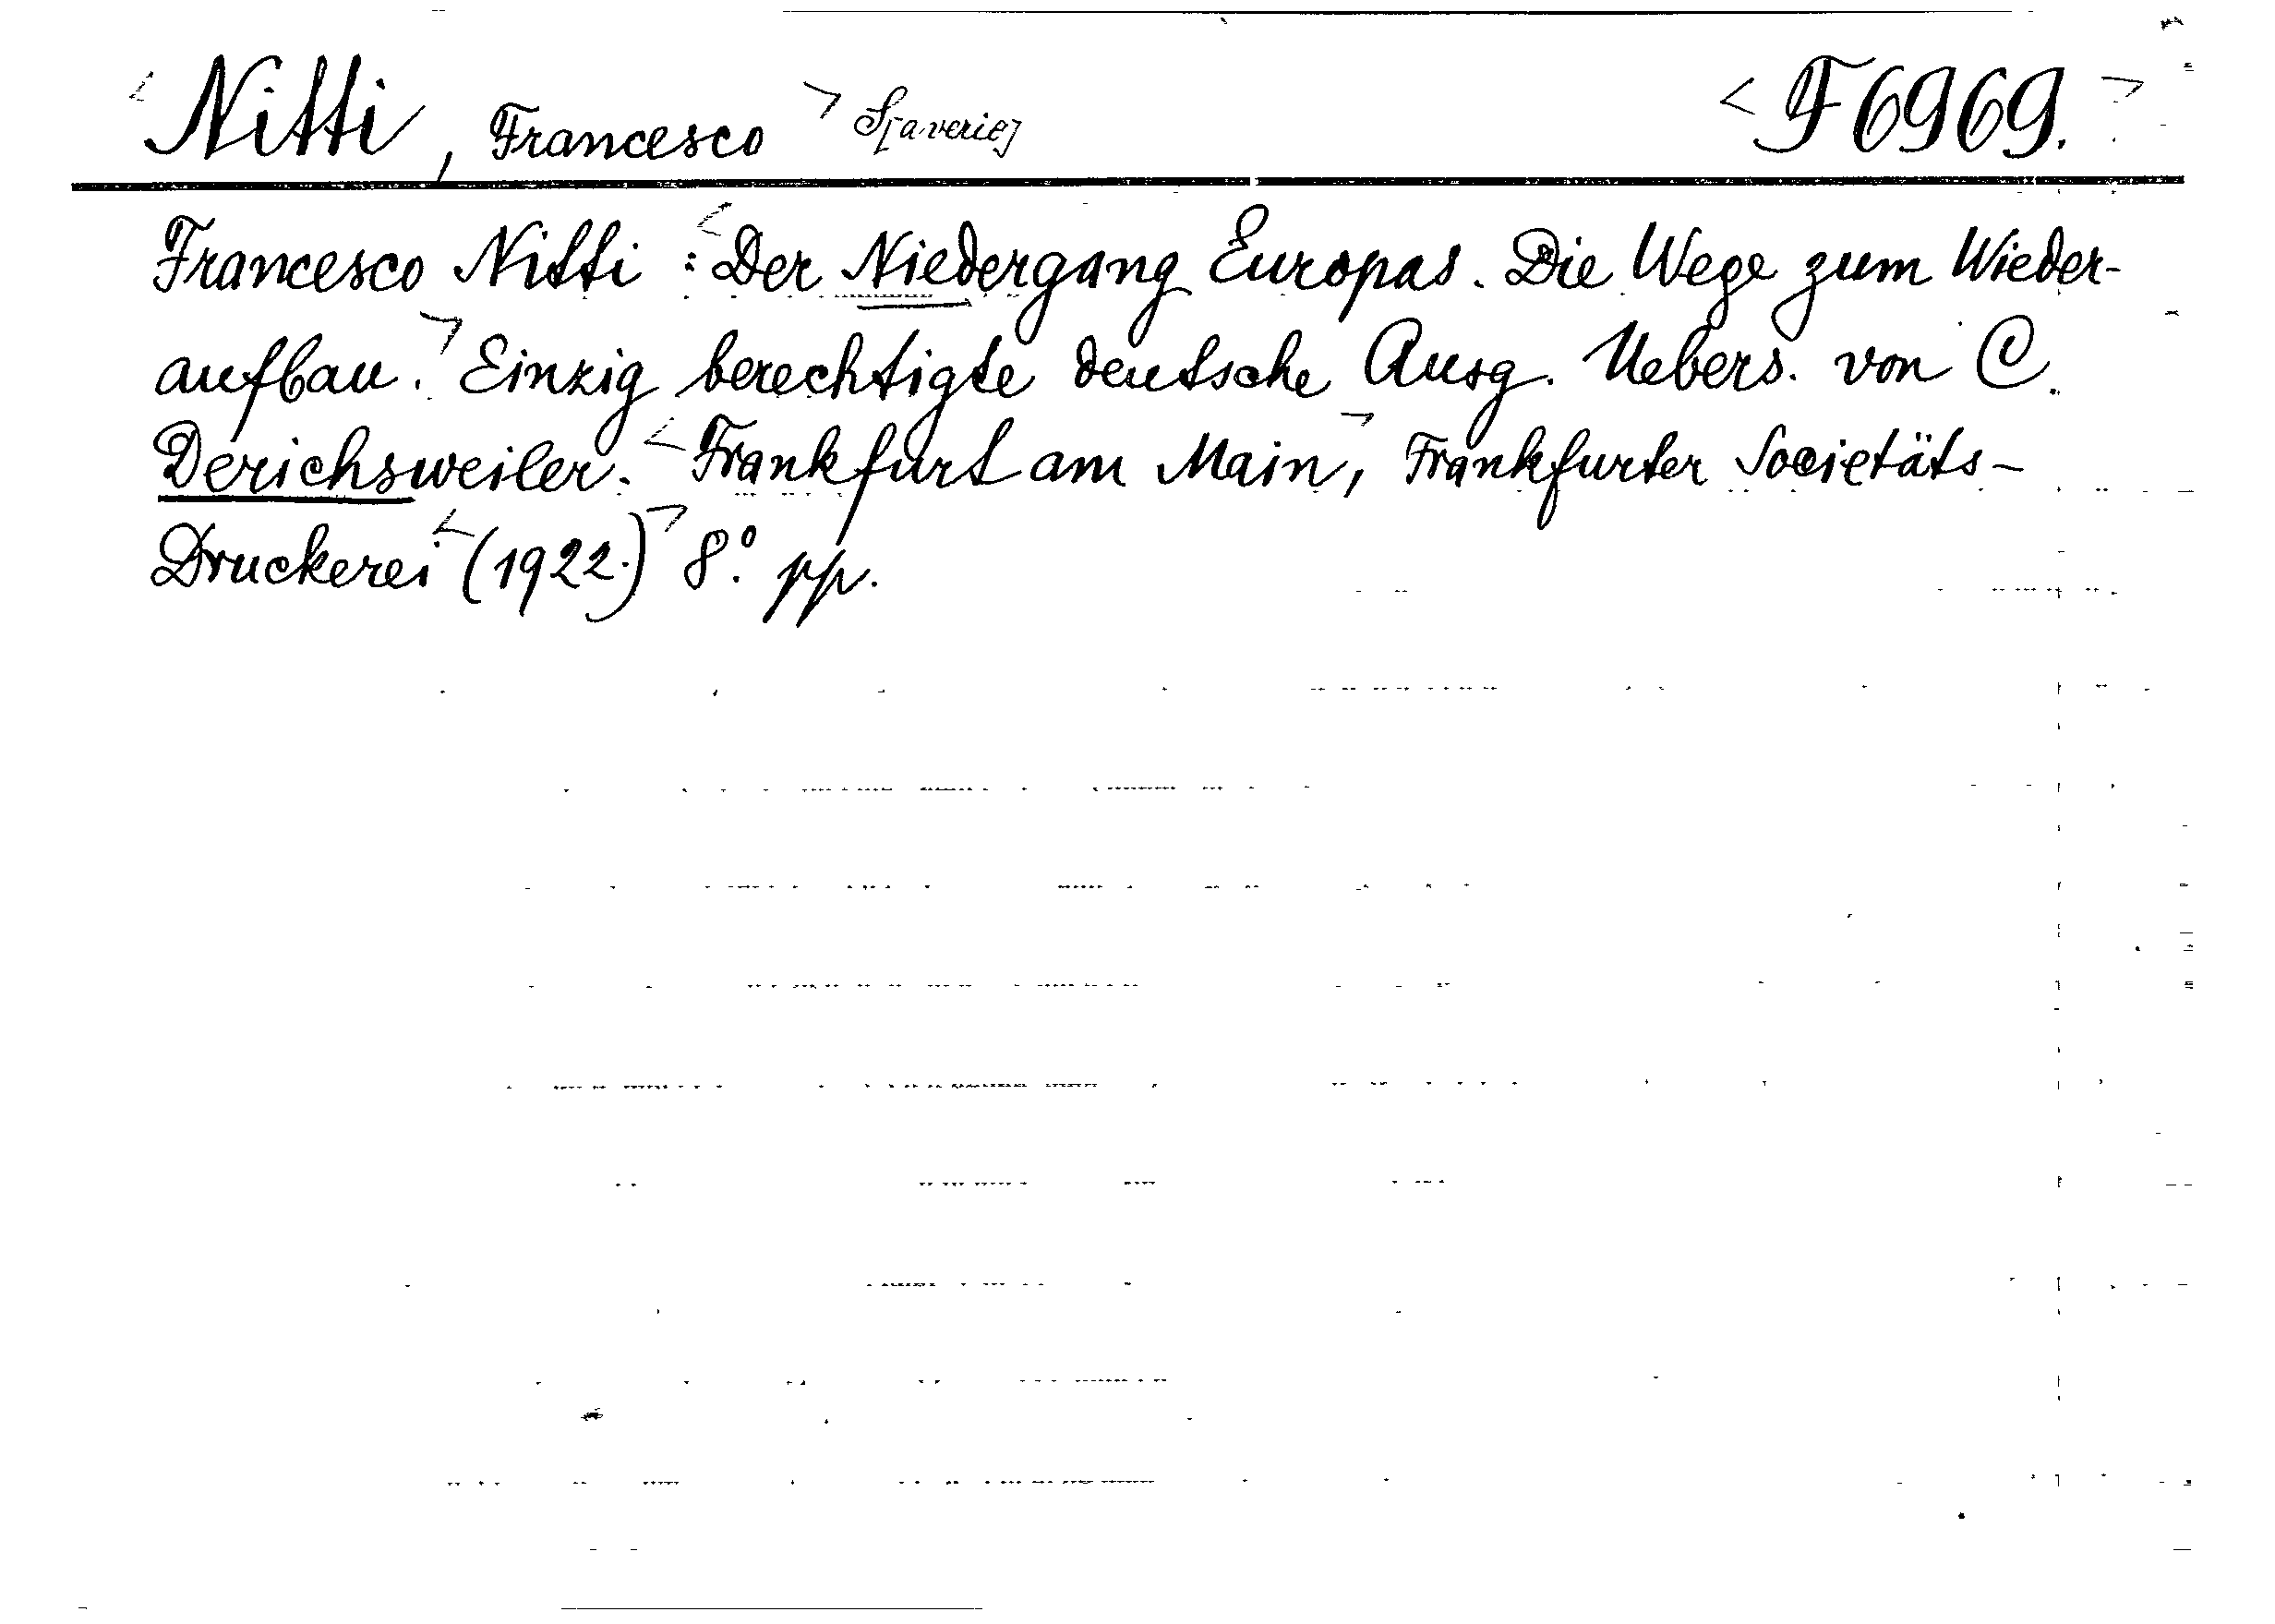 <Nitti, Francesco> S[averio] <F 6969.>
Francesco Nitti: <Der Niedergang Europas. Die Wege zum Wieder-
aufbau.> Einzig berechtigte deutsche Ausg. Uebers. von C.
Derichsweiler. <Frankfurt am Main>, Frankfurter Societäts-
Druckerei <(1922.)> 8°. pp.